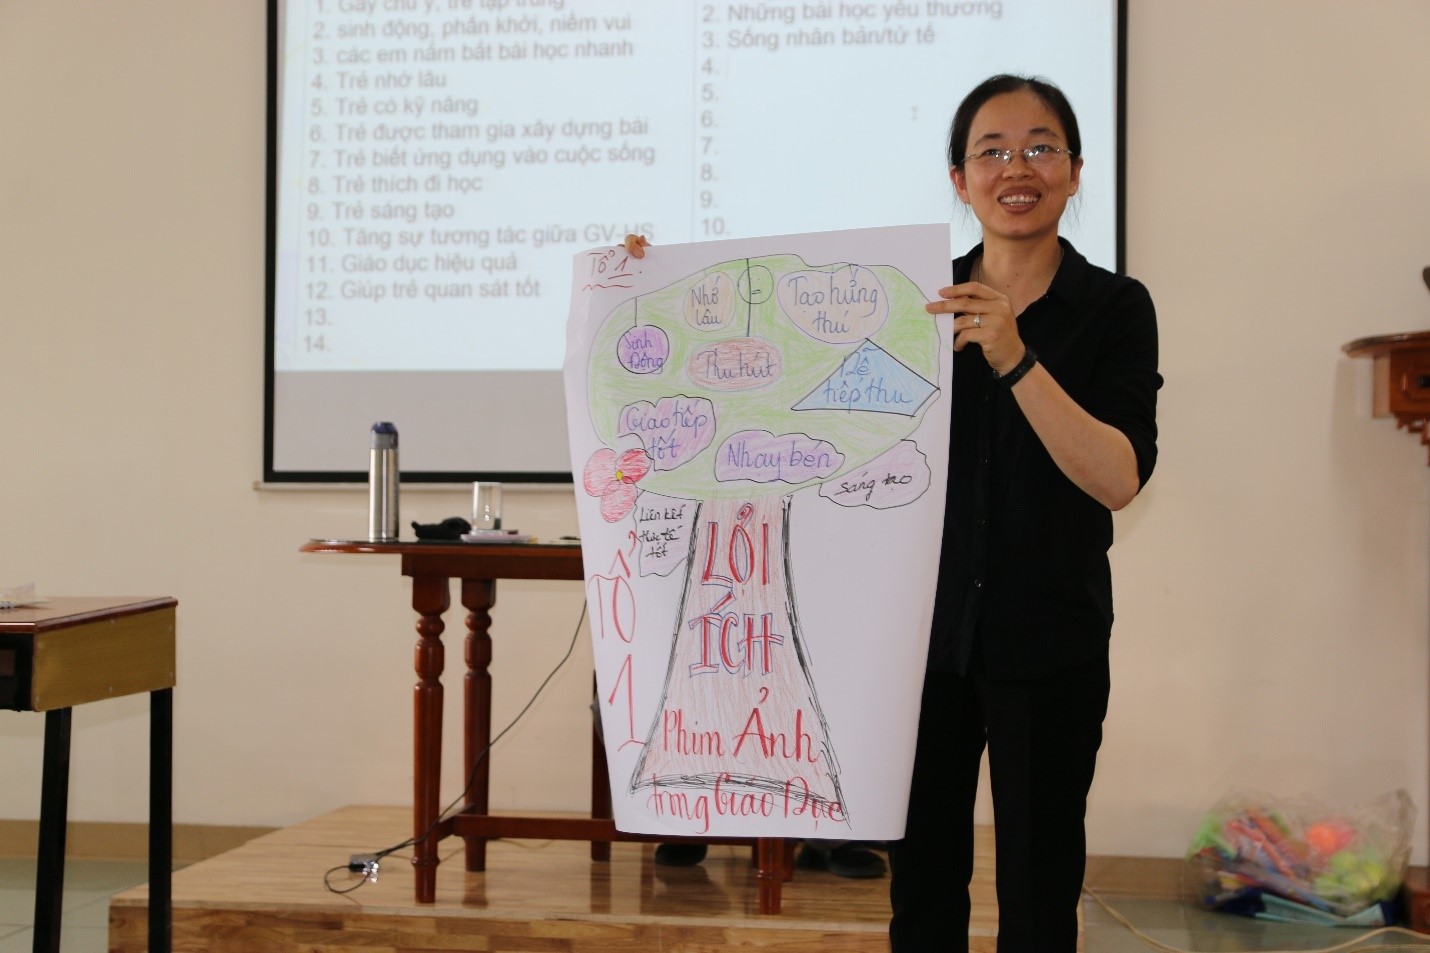 1. Gây chú ý, trẻ tập trung
2. sinh động, phấn khởi, niềm vui
3. các em nắm bắt bài học nhanh
4. Trẻ nhớ lâu
5. Trẻ có kỹ năng
6. Trẻ được tham gia xây dựng bài
7. Trẻ biết ứng dụng vào cuộc sống
8. Trẻ thích đi học
9. Trẻ sáng tạo
10. Tăng sự tương tác giữa GV-HS
11. Giáo dục hiệu quả
12. Giúp trẻ quan sát tốt
13.
14.
2. Những bài học yêu thương
3. Sống nhân bản/tử tế
4.
5.
6.
7.
8.
9.
10.
Tổ 1.
Nhớ
lâu
Tạo hứng
thú
Sinh
Động
Thu hút
Dễ
tiếp thu
Giao tiếp
tốt
Nhạy bén
sáng tạo
Liên kết
thực tế
tốt
TỔ
1
LỢI
ÍCH
Phim Ảnh
trong Giáo Dục